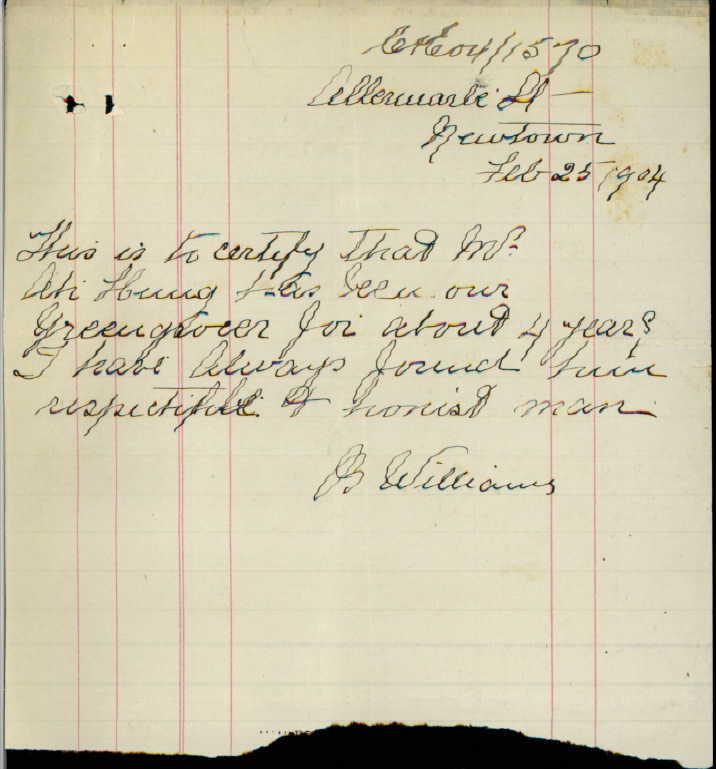 C&E 04/1570
Allermarle St
Newtown
Feb 25 1904
This is to certify that Mr
Ah Hung has been our
Greengrocer for about 4 years
I have Always found him
respectifule & honist man
B Williams